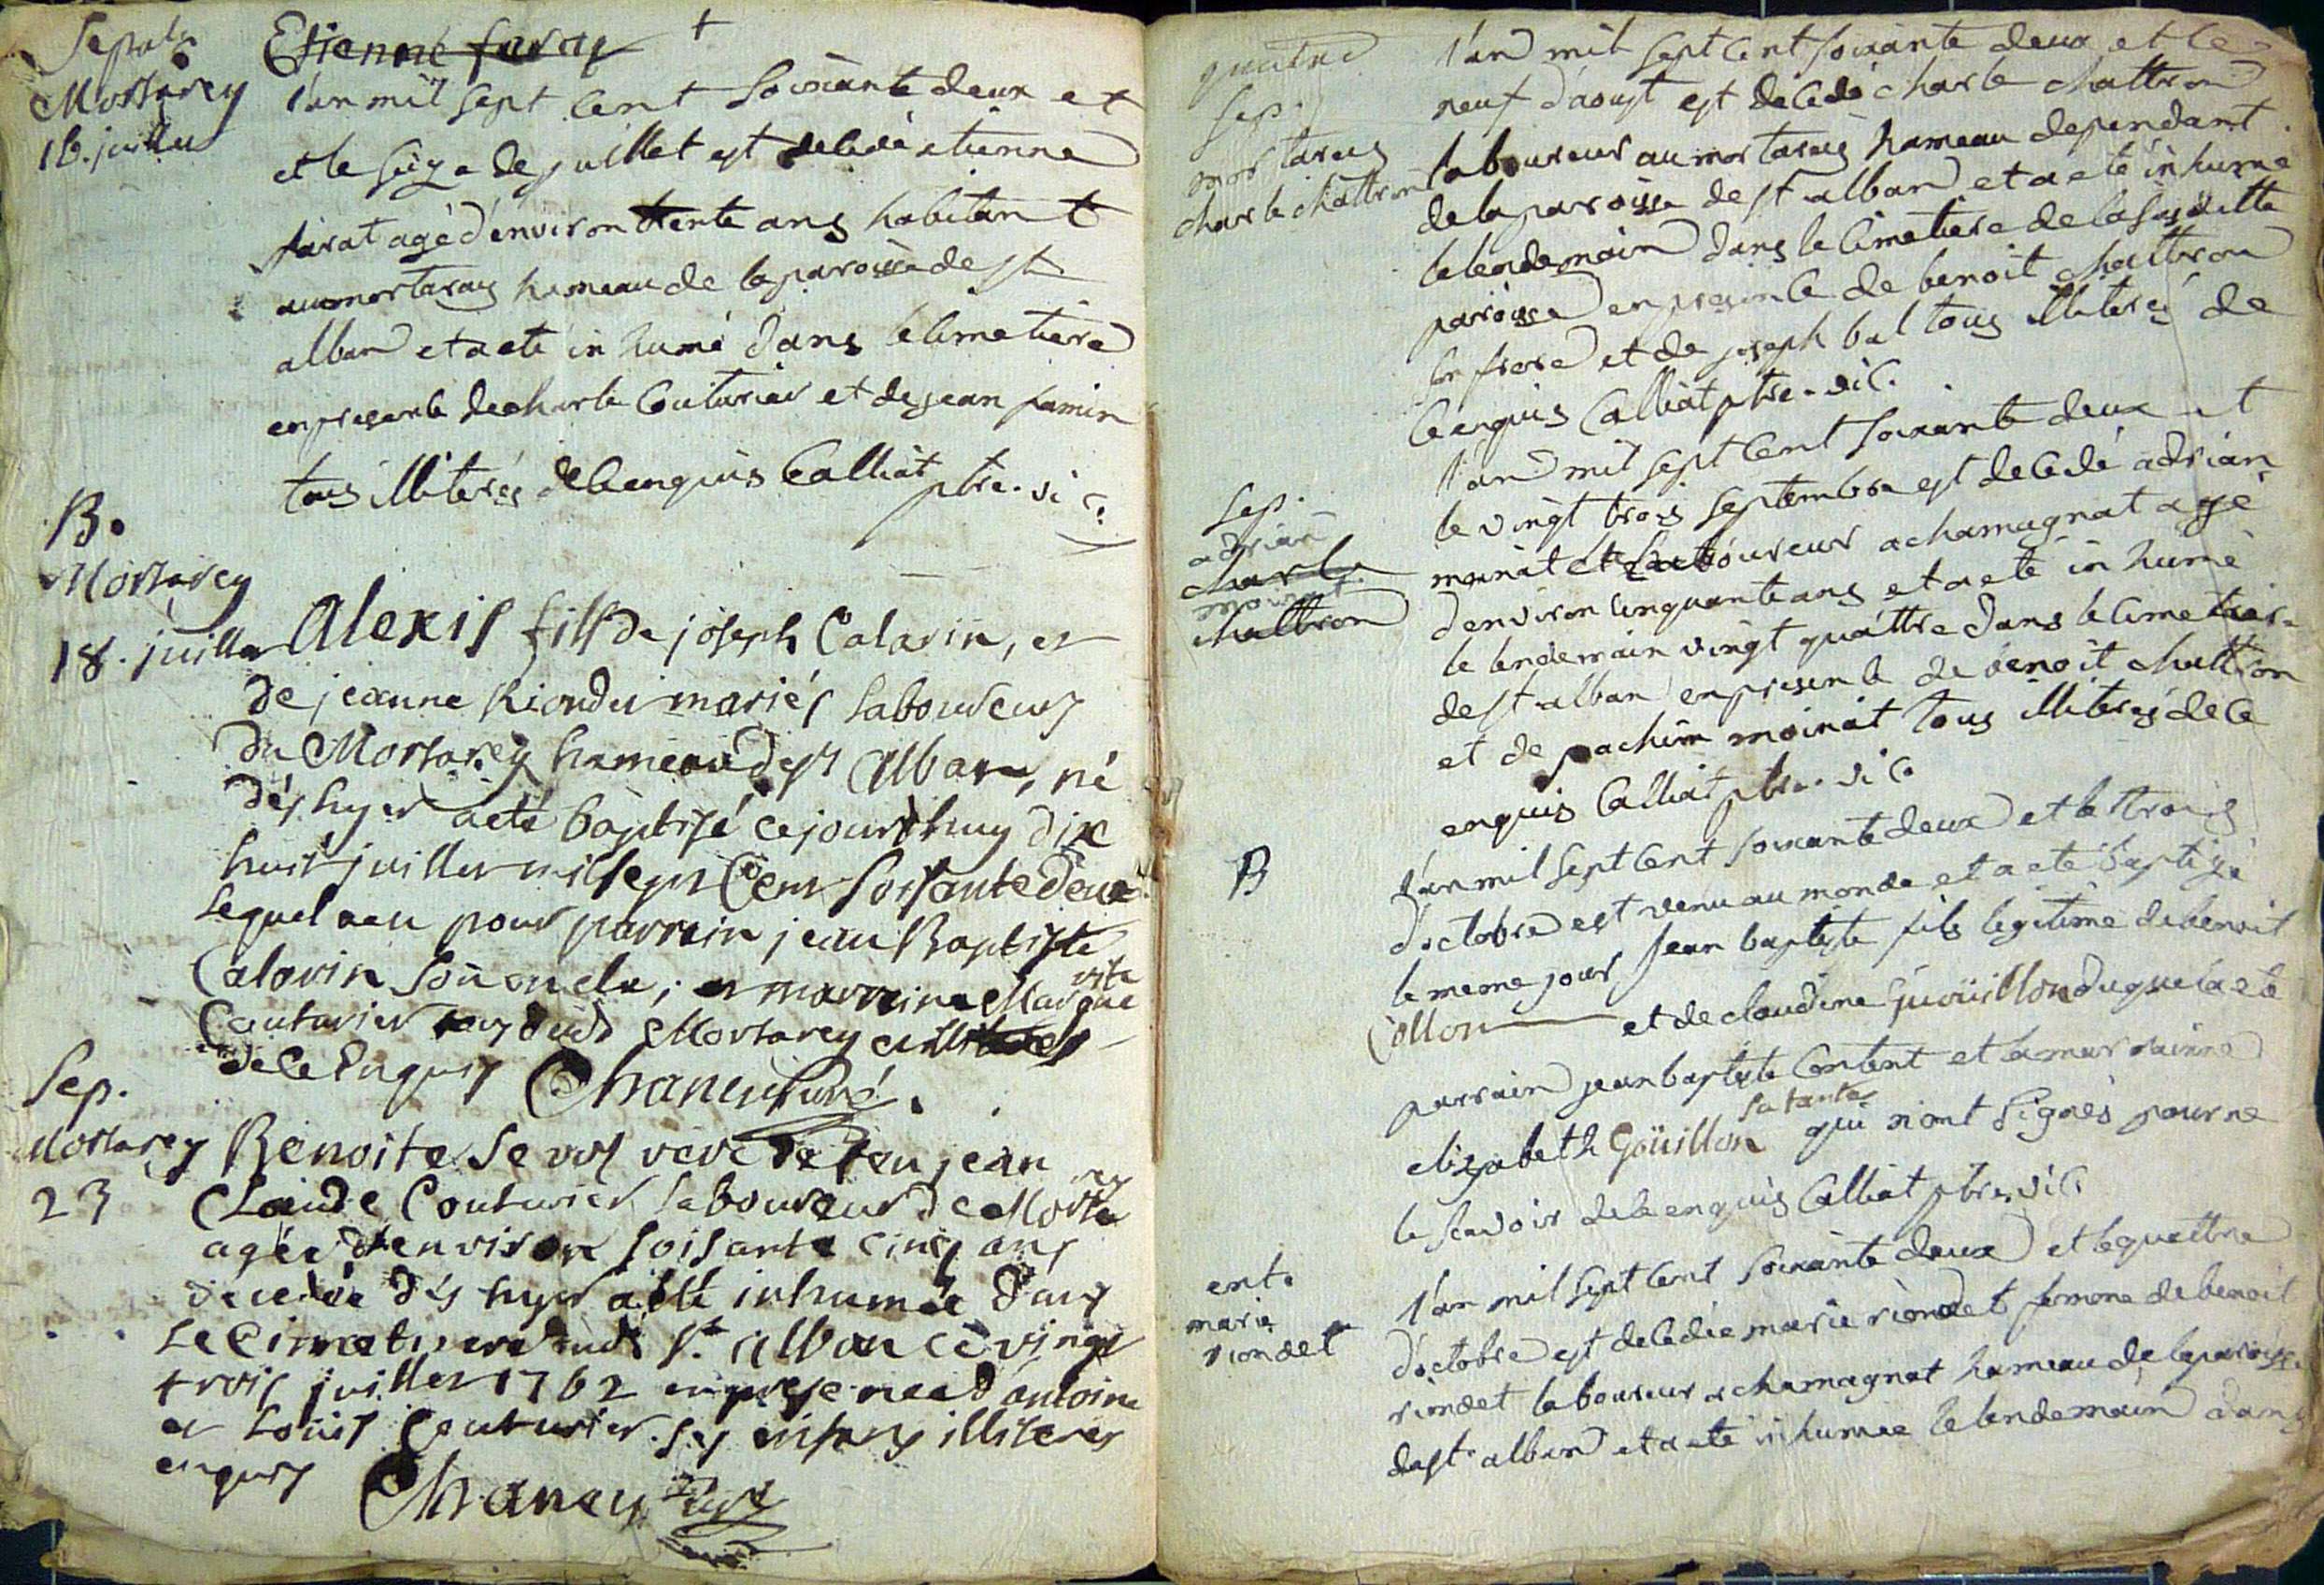 Sepult.
Mortarey
16. juillet
Etienne farat +
l'an mil sept cent soixante deux et
et le seize de juillet est decedé etienne
farat agé d'environ trente ans habitant
au mortaray hameau de la paroisse de st
alban et a eté in humé dans le cimetiere
en presente de charle Couturier et de jean jamin
tous illiterés de ce enquis Calliat ptre. vic.
B.
Mortarey
18. juillet Alexis fils de joseph Calavin, et
de jeanne Riondet mariés laboureurs
du Mortarey hameau de st Alban, né
dés hyer a eté baptisé ce jourd'huy dix
huit juillet mil sept Cent soisante deux
lequel a eu pour parrein jean Baptiste
Calavin son oncle; et marreine Margueritte
Couturier tous dud Mortarey illiteres
de ce Enquis Chaney Curé.
Sep.
Mortarey
23
Benoite Servos veve de feu jean
Claude Couturier laboureur de Mortarey
agée d'environ soisante cinq ans
decedée dés hyer a eté inhumée dans
le Cimetiere dud St. Alban ce vingt
trois juillet 1762 en presence d'antoine
et Loüis Couturier ses enfans illiteres
enquis Chaney Curé
quatre
sep.
mortareis
charle chattron
l'an mil sept cent soixante deux et le
neuf d'aoust est decedé charle chattron
laboureur au mortareis hameau dependant
de la paroisse de st alban et a eté inhumé
le lendemain dans le cimetiere de la susditte
paroisse en presente de benoit chattron
son frere et de joseph bal tous illiterés de
ce enquis Calliat ptre. vic.
sep.
adrian
charle
moinat
chattron
l'an mil sept cent soixante deux et
le vingt trois septembre est decedé adrian
moinat laboureur a chamagnat agé
d'environ cinquante ans et a eté in humé
le lendemain vingt quattre dans le cimetiere
de st alban en presente de benoit chattron
et de joachim moinat tous illiterés de ce
enquis Calliat ptre. vic
B
l'an mil sept cent soixante deux et le trois
d'octobre est venu au monde et a eté baptizé
le meme jour jean baptiste fils legitime de benoit
Collon et de claudine Goüillon duquel a eté
parrain jean baptiste Content et la marrainne
elizabeth Goüillon sa tante qui n'ont signés pour ne
le scavoir de ce enquis Calliat ptre. vic.
ent.
marie
riondet
l'an mil sept cent soixante deux et le quattre
d'octobre est decedée marie riondet femme de benoit
riondet laboureur a chamagnat hameau de la paroisse
de st. alban et a eté inhumée le lendemain dans